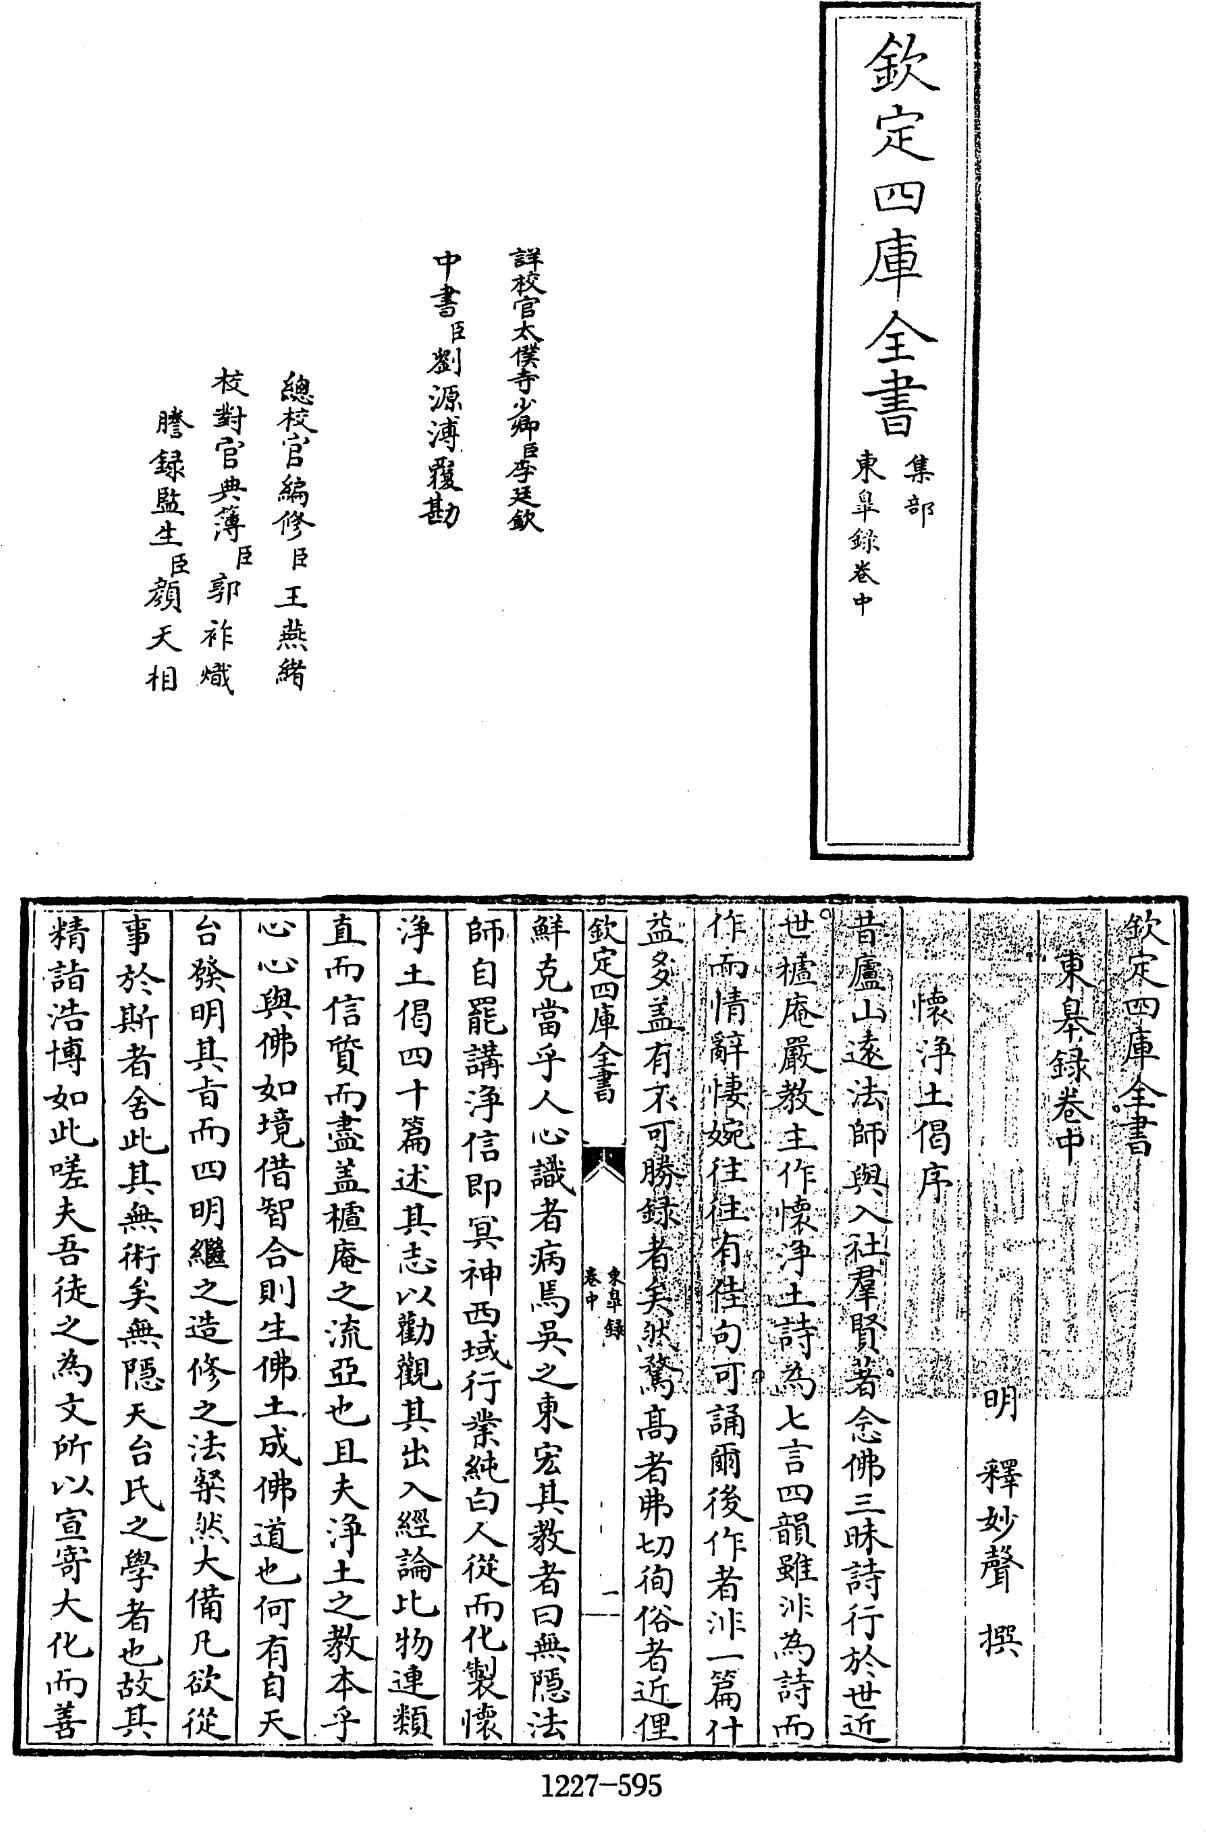 欽定四庫全書
集部
東臯錄卷中
詳校官太僕寺少卿臣李廷欽
中書臣劉源溥覆勘
總校官編修臣王燕緒
校對官典簿臣郭祚熾
謄録監生臣顏天相
欽定四庫全書
東臯録卷中
明 釋妙聲 撰
懷淨土偈序
昔廬山遠法師與入社羣賢著念佛三昧詩行於世近
世櫨庵嚴教主作懷淨土詩為七言四韻雖非為詩而
作而情辭悽婉往往有佳句可誦爾後作者非一篇什
益多盖有不可勝録者矣然騖髙者弗切徇俗者近俚
欽定四庫全書
東臯録
卷中
一
鮮克當乎人心識者病焉吳之東宏其教者曰無隱法
師自罷講淨信即冥神西域行業純白人從而化製懷
淨土偈四十篇述其志以勸觀其出入經論比物連類
直而信質而盡盖櫨庵之流亞也且夫淨土之教本乎
心心與佛如境借智合則生佛土成佛道也何有自天
台發明其㫖而四明繼之造修之法粲然大備凡欲從
事於斯者舍此其無術矣無隱天台氏之學者也故其
精詣浩博如此嗟夫吾徒之為文所以宣寄大化而善
1227-595